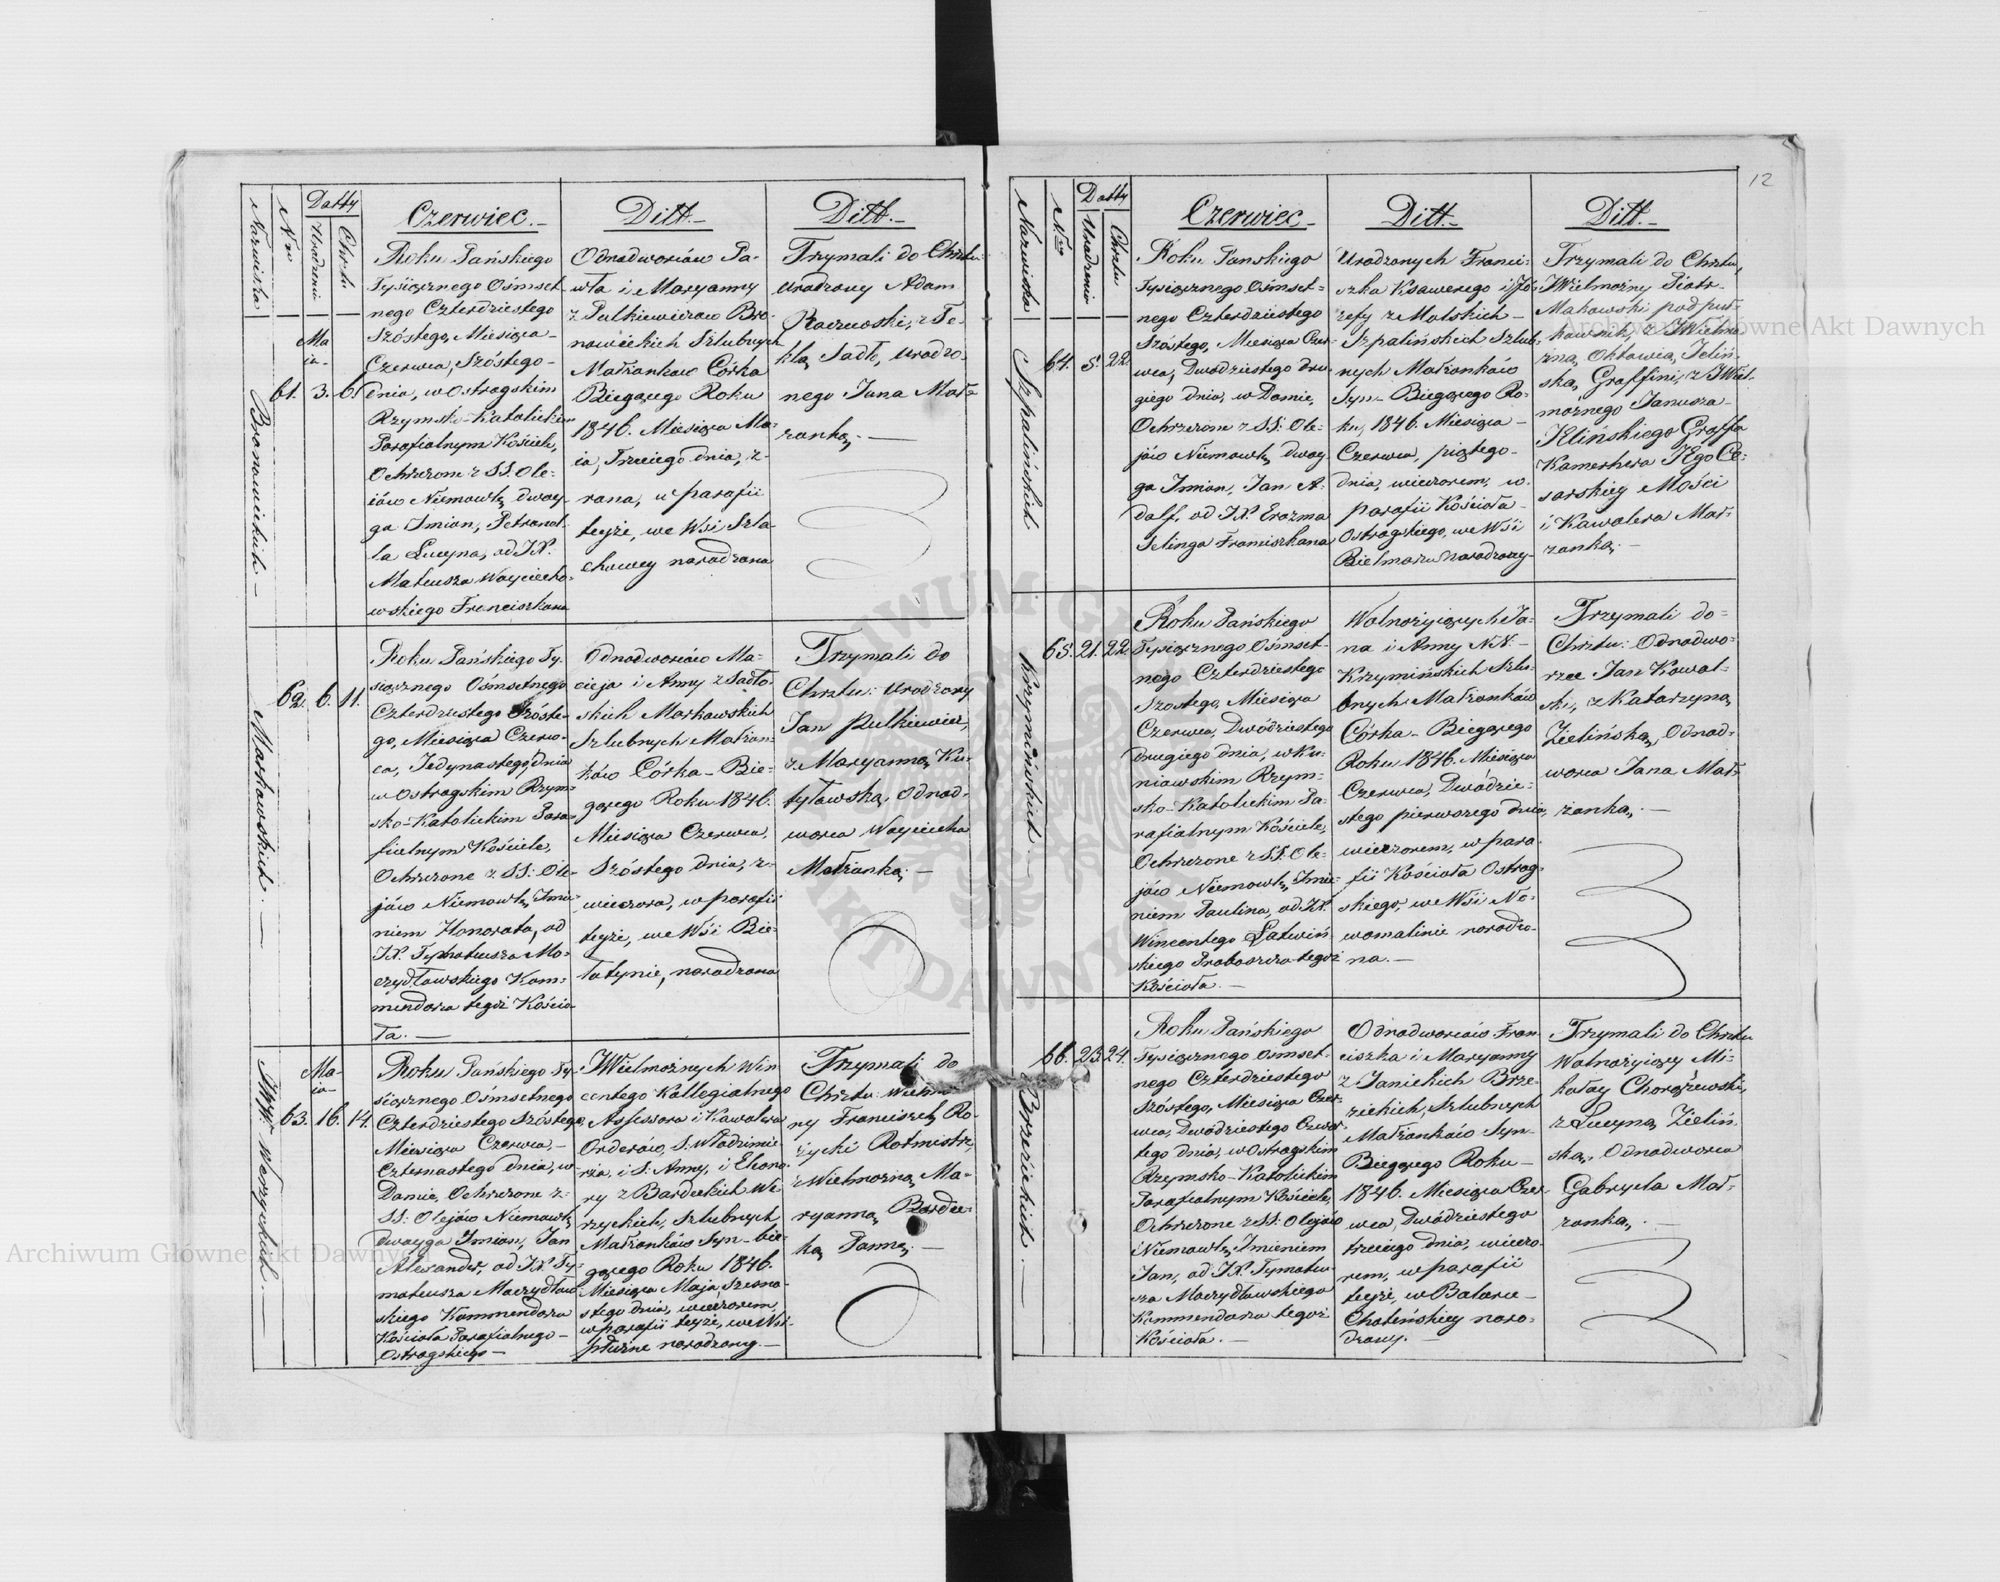 12
Nazwiska
Nro
Datty
Urodzenia
Chrztu
Czerwiec.
Ditt.
Ditt.
Bronowickich.
61.
Maia
3.
6.
Roku Pańskiego
Tysiącznego Ośmset-
nego Czterdziestego
Szóstego, Miesiąca
Czerwca, Szóstego
dnia, w Ostrogskim
Rzymsko-Katolickim
Parafialnym Kościele,
Ochrzczone z SS. Ole-
iów Niemowlę, dwoy-
ga Imion, Petronel-
la Lucyna, od JX.
Mateusza Woyciecho-
wskiego Franciszkana
Odnodworców Pa-
wła i Maryanny
z Pulkiewiczów Bro-
nowickich Szlubnych
Małżonków Córka
Bieżącego Roku
1846. Miesiąca Ma-
ia, Trzeciego dnia, z
rana, w parafii
teyże, we Wsi Szla-
chowey narodzona
Trzymali do Chrztu:
Urodzony Adam
Raczwoski, z Te-
klą Sadło, urodzo-
nego Jana Mał-
żonką.
Markowskich.
62.
6.
11.
Roku Pańskiego Ty-
siącznego Ośmsetnego
Czterdziestego Szóste-
go, Miesiąca Czerw-
ca, Jedynastego dnia
w Ostrogskim Rzym-
sko-Katolickim Para-
fialnym Kościele,
Ochrzczone z SS: Ole-
jów Niemowlę, Imie-
niem Honorata, od
JX. Tymoteusza Mo-
czydłowskiego Kom-
mendarza tegoż Kościo-
ła.
Odnodworców Ma-
cieja i Anny z Sadło-
skich Markowskich
Szlubnych Małżon-
ków Córka Bie-
żącego Roku 1846.
Miesiąca Czerwca,
Szóstego dnia, z
wieczora, w parafii
teyże, we Wsi Bie-
łotynie, narodzona
Trzymali do
Chrztu: Urodzony
Jan Pulkiewicz,
z Maryanną Ku-
tyłowską, Odnod-
worca Woyciecha
Małżonką.
JWW. Worzyckich.
63.
Maia
16.
14.
Roku Pańskiego Ty-
siącznego Ośmsetnego
Czterdziestego Szóstego,
Miesiąca Czerwca,
Czternastego dnia, w
Domie, Ochrzczone z
SS: Olejów Niemowlę
dwoyga Imion, Jan
Alexander, od JX. Ty-
moteusza Moczydłow-
skiego Kommendarza
Kościoła Parafialnego
Ostrogskiego
JWielmożnych Win-
centego Kollegialnego
Assessora i Kawalera
Orderów, S. Włodzimie-
rza, i S: Anny, i Eleono-
ry z Bardeckich We-
rzyckich, Szlubnych
Małżonków Syn bie-
żącego Roku 1846.
Miesiąca Maja Szesna-
stego dnia, wieczorem,
w parafii teyże, we Wsi
narodzony.
Trzymali do
Chrztu: Wielmo-
żny Franciszek Ro-
życki Rotmistrz,
z Wielmożną Ma-
ryanną Bardec-
ką Panną.
Nazwiska
Nro
Datty
Urodzenia
Chrztu
Czerwiec.
Ditt.
Ditt.
Szpalińskich
64.
5.
22.
Roku Pańskiego
Tysiącznego Ośmset-
nego Czterdziestego
Szóstego, Miesiąca Czer-
wca, Dwodziestego dru-
giego dnia, w Domie,
Ochrzczone z SS: Ole-
jów Niemowlę, dwoy-
ga Imion, Jan A-
dolf, od JX. Erazma
Jelinga Franciszkana
Urodzonych Franci-
szka Ksawerego i Jó-
zefy z Molskich
Szpalińskich Szlub-
nych Małżonków
Syn Bieżącego Ro-
ku, 1846. Miesiąca
Czerwca, piątego
dnia, wieczorem, w
parafii Kościoła
Ostrogskiego, we Wsi
Bielmażu narodzony
Trzymali do Chrztu,
JWielmożny Piotr
Makowski podpuł-
kownik, z JWielmo-
żną Oktawią, Jeliń-
ską, Graffini, z JWiel-
możnego Janusza
Ilińskiego Graffa
Kamerhera JEgo Ce-
sarskiey Mości
i Kawalera Mał-
żonką.
Krzymińskich
65.
21.
22.
Roku Pańskiego
Tysiącznego Ośmset-
nego Czterdziestego
Szóstego, Miesiąca
Czerwca, Dwódziestego
drugiego dnia, w Ku-
niowskim Rzym-
sko-Katolickim Pa-
rafialnym Kościele,
Ochrzczone z SS: Ole-
jów Niemowlę, Imie-
niem Paulina, od JX.
Wincentego Łatwiń-
skiego Proboszcza tegoż
Kościoła.
Wolnożyjących Ja-
na i Anny NN.
Krzymińskich Szlu-
bnych Małżonków
Córka Bieżącego
Roku 1846. Miesiąca
Czerwca, Dwódzie-
stego pierwszego dnia,
wieczorem, w para-
fii Kościoła Ostrog-
skiego, we Wsi No-
womalinie narodzo-
na.
Trzymali do
Chrztu: Odnodwo-
rzec Jan Kowal-
ski, z Katarzyną
Zielińską, Odnod-
worca Jana Mał-
żonką.
Brzezickich
66.
23.
24.
Roku Pańskiego
Tysiącznego Ośmset-
nego Czterdziestego
Szóstego, Miesiąca Czer-
wca, Dwódziestego Czwar-
tego dnia, w Ostrogskim
Rzymsko-Katolickim
Parafialnym Kościele,
Ochrzczone z SS: Olejów
Niemowlę, Imieniem
Jan, od JX. Tymoteu-
sza Moczydłowskiego
Kommendarza tegoż
Kościoła.
Odnodworców Fran-
ciszka i Maryanny
z Janickich Brze-
zickich, Szlubnych
Małżonków Syn
Bieżącego Roku
1846. Miesiąca Czer-
wca, Dwódziestego
trzeciego dnia, wieczo-
rem, w parafii
teyże, w Bolarce
Choteńskiey naro-
dzony.
Trzymali do Chrztu
Wolnożyjący Mi-
kołay Chorążewski,
z Lucyną Zieliń-
ską, Odnodworca
Gabryela Mał-
żonką.
Archiwum Główne Akt Dawnych
Archiwum Główne Akt Dawnych
ARCHIWUM GŁÓWNE AKT DAWNYCH